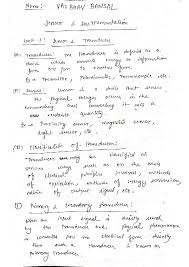 Name:- VAIBHAV BANSAL
Sensor & Instrumentation
Unit-1: Sensor & Transducer
(A) Transducer: The Transducer is defined as a
device which converts energy or information
from one form to another form.
Ex → Thermistor, Thermocouple etc.
(B) Sensor: Sensor is a device that senses
the physical changes occurs in the
surrounding and converting it into a
readable quantity.
Ex → Proximity sensor, magnetic sensor,
light sensor, etc.
Classification of Transducer:
Transducer may be classified on
various ways such as on the basis
of electrical principle involved, methods
of application, methods of energy conversion,
nature of output signal, etc.
Primary & Secondary Transducer:
When the input signal is directly sensed
by the Transducer and physical phenomenon
is converted into the electrical form directly
then such a Transducer is known as
primary Transducer.